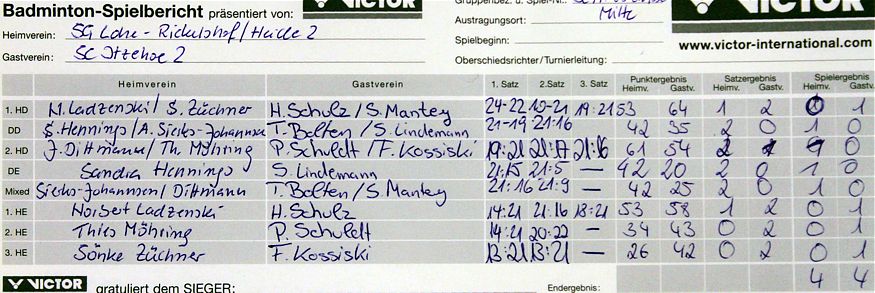 Badminton-Spielbericht präsentiert von: VICTOR
Heimverein: SG Lohe-Rickelshof/Heide 2
Gastverein: SC Itzehoe 2
Gruppenbez. u. Spiel-Nr.:
Austragungsort: Mitte
Spielbeginn:
Oberschiedsrichter/Turnierleitung:
VICTOR
www.victor-international.com
Heimverein Gastverein 1. Satz 2. Satz 3. Satz Punktergebnis Heimv. Gastv. Satzergebnis Heimv. Gastv. Spielergebnis Heimv. Gastv.
1. HD N. Ladzenski / S. Züchner H. Schulz / S. Mantey 24-22 10-21 19-21 53 64 1 2 0 1
DD S. Hennings / A. Sierks-Johannsen T. Bolten / S. Lindemann 21-19 21-16 42 35 2 0 1 0
2. HD J. Dittmann / Th. Möhring P. Schuldt / F. Kossiski 19:21 21:17 21:16 61 54 2 1 0
DE Sandra Hennings S. Lindemann 21:15 21:5 — 42 20 2 0 1 0
Mixed Sierks-Johannsen / Dittmann T. Bolten / S. Mantey 21:16 21:9 — 42 25 2 0 1 0
1. HE Norbert Ladzenski H. Schulz 14:21 21:16 18:21 53 58 1 2 0 1
2. HE Thies Möhring P. Schuldt 14:21 20:22 — 34 43 0 2 0 1
3. HE Sönke Züchner F. Kossiski 13:21 13:21 — 26 42 0 2 0 1
VICTOR gratuliert dem SIEGER: Endergebnis: 4 4